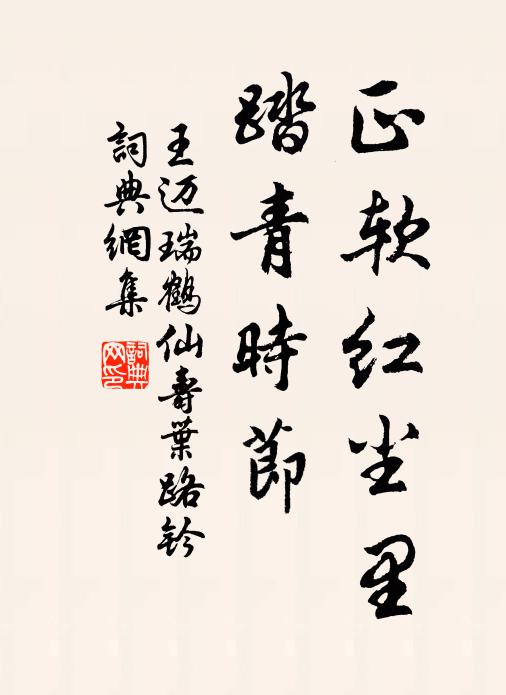 正软红尘里
踏青時節
王迈瑞鶴仙壽葉路鈐
詞典網集
詞典网印